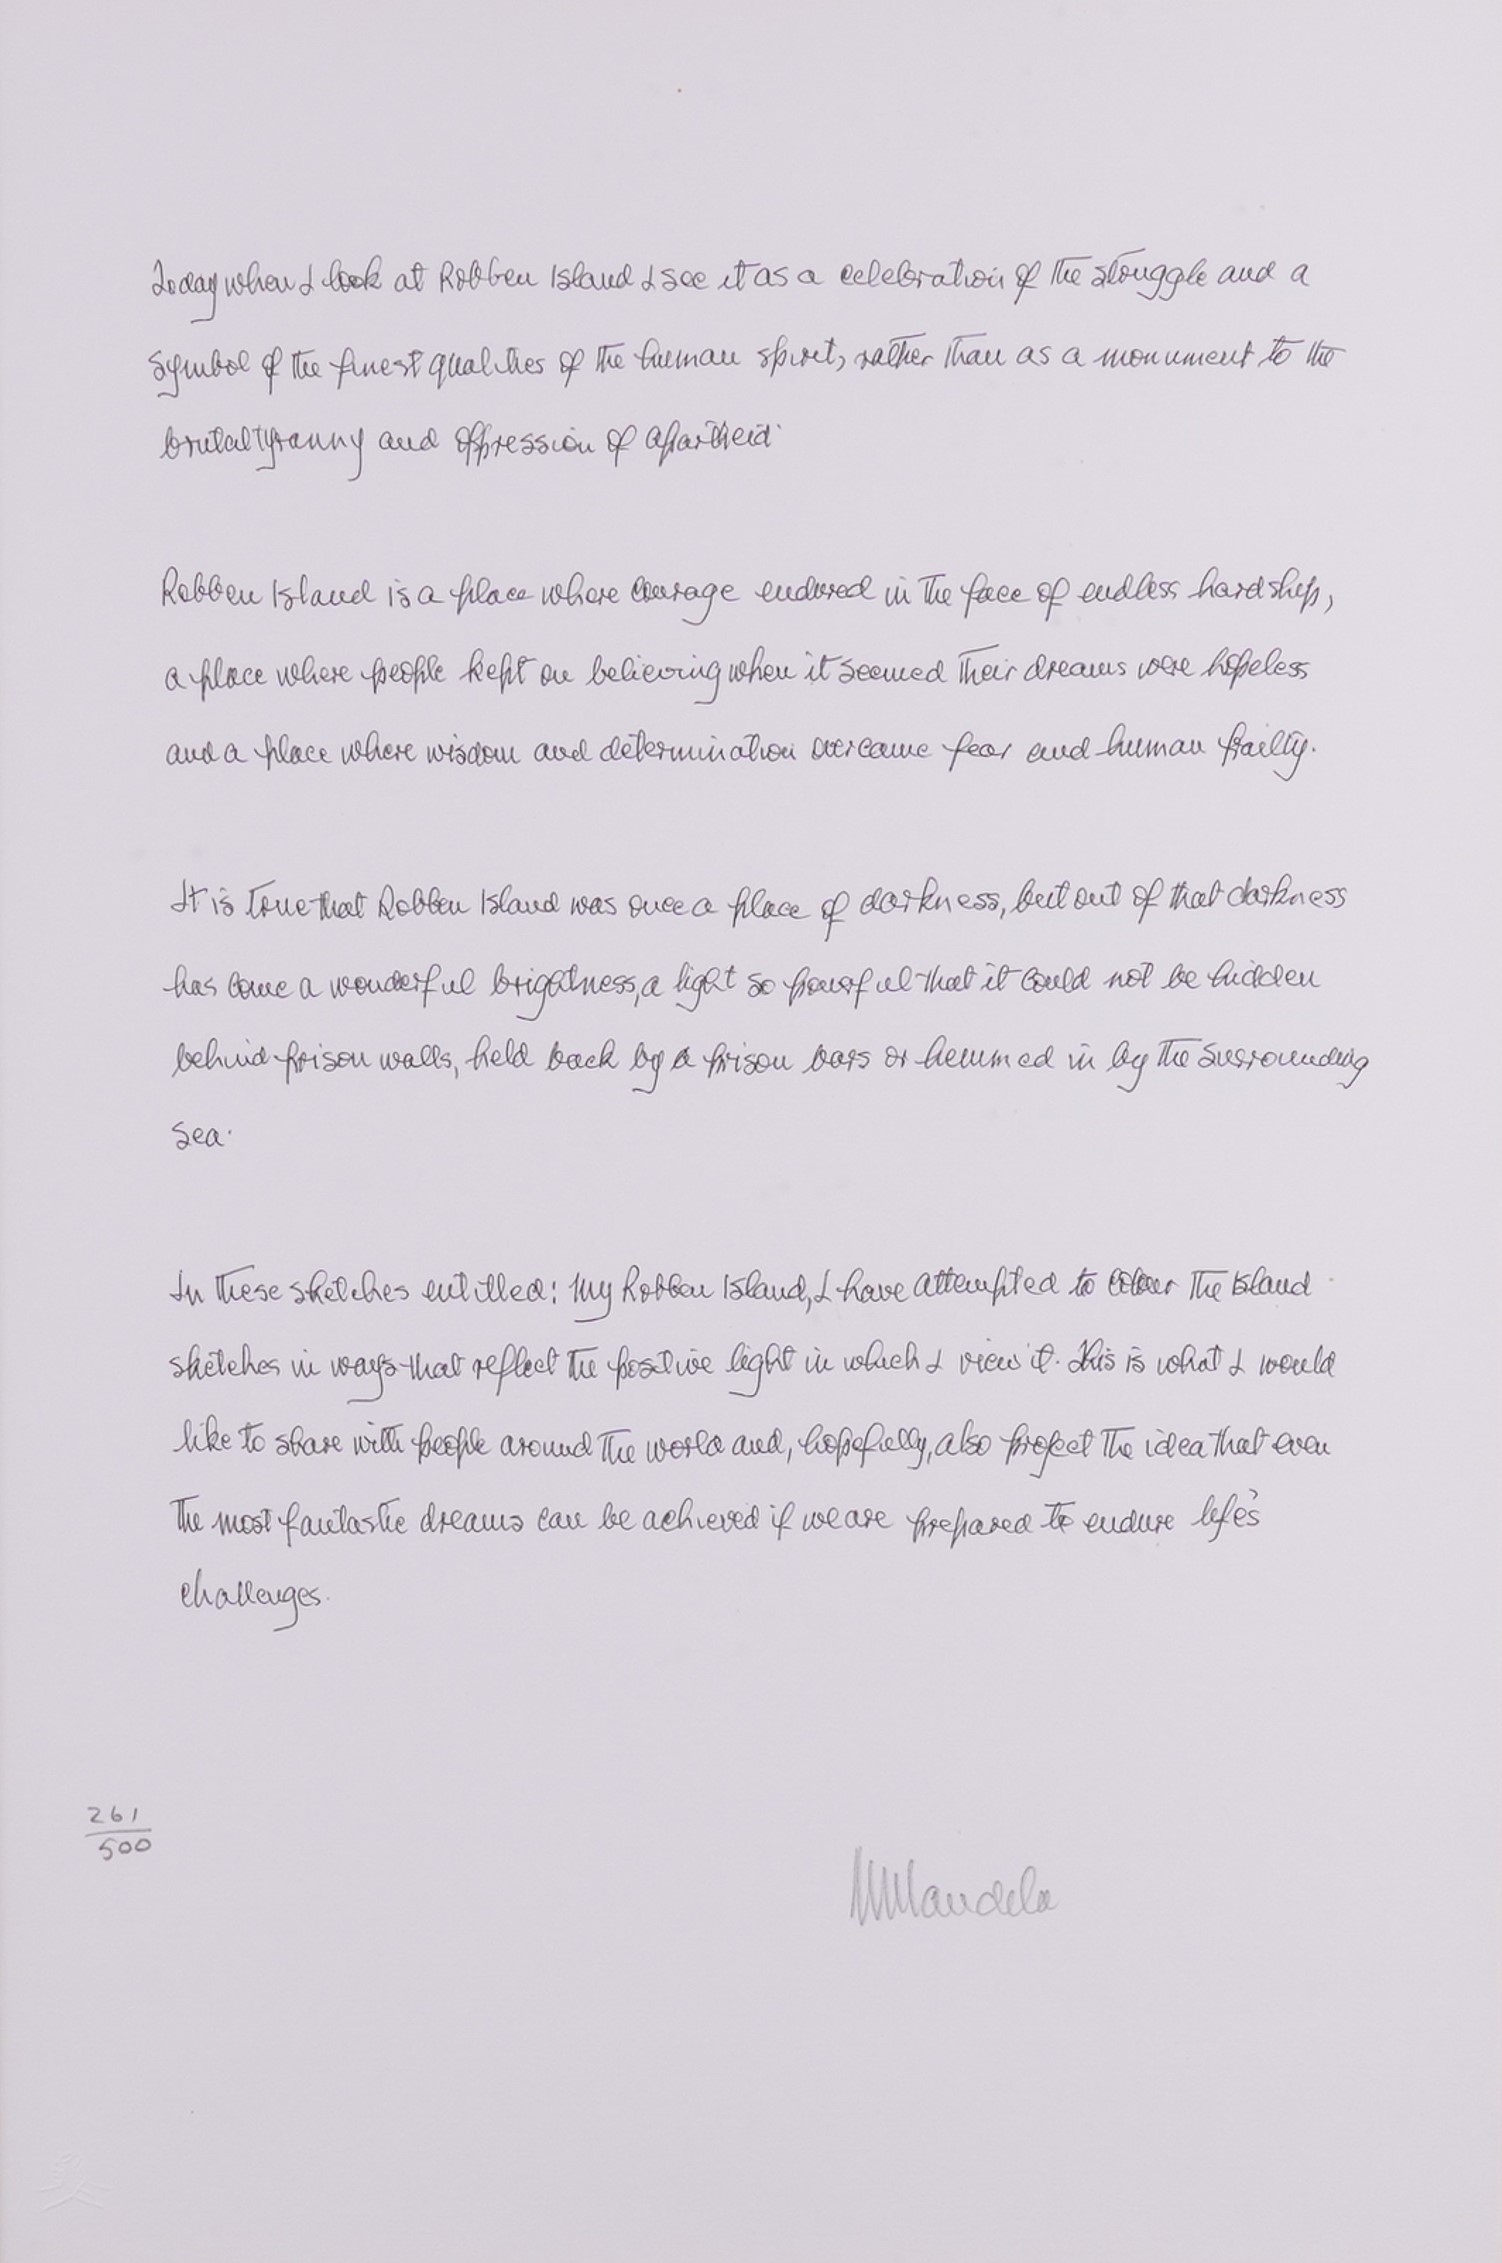 Today when I look at Robben Island I see it as a celebration of the struggle and a
symbol of the finest qualities of the human spirit, rather than as a monument to the
brutal tyranny and oppression of apartheid.
Robben Island is a place where courage endured in the face of endless hardship,
a place where people kept on believing when it seemed their dreams were hopeless
and a place where wisdom and determination overcame fear and human frailty.
It is true that Robben Island was once a place of darkness, but out of that darkness
has come a wonderful brightness, a light so powerful that it could not be hidden
behind prison walls, held back by a prison bars or hemmed in by the surrounding
sea.
In these sketches entitled: My Robben Island, I have attempted to colour the island
sketches in ways that reflect the positive light in which I view it. This is what I would
like to share with people around the world and, hopefully, also project the idea that even
the most fantastic dreams can be achieved if we are prepared to endure life's
challenges.
261
500
NMandela